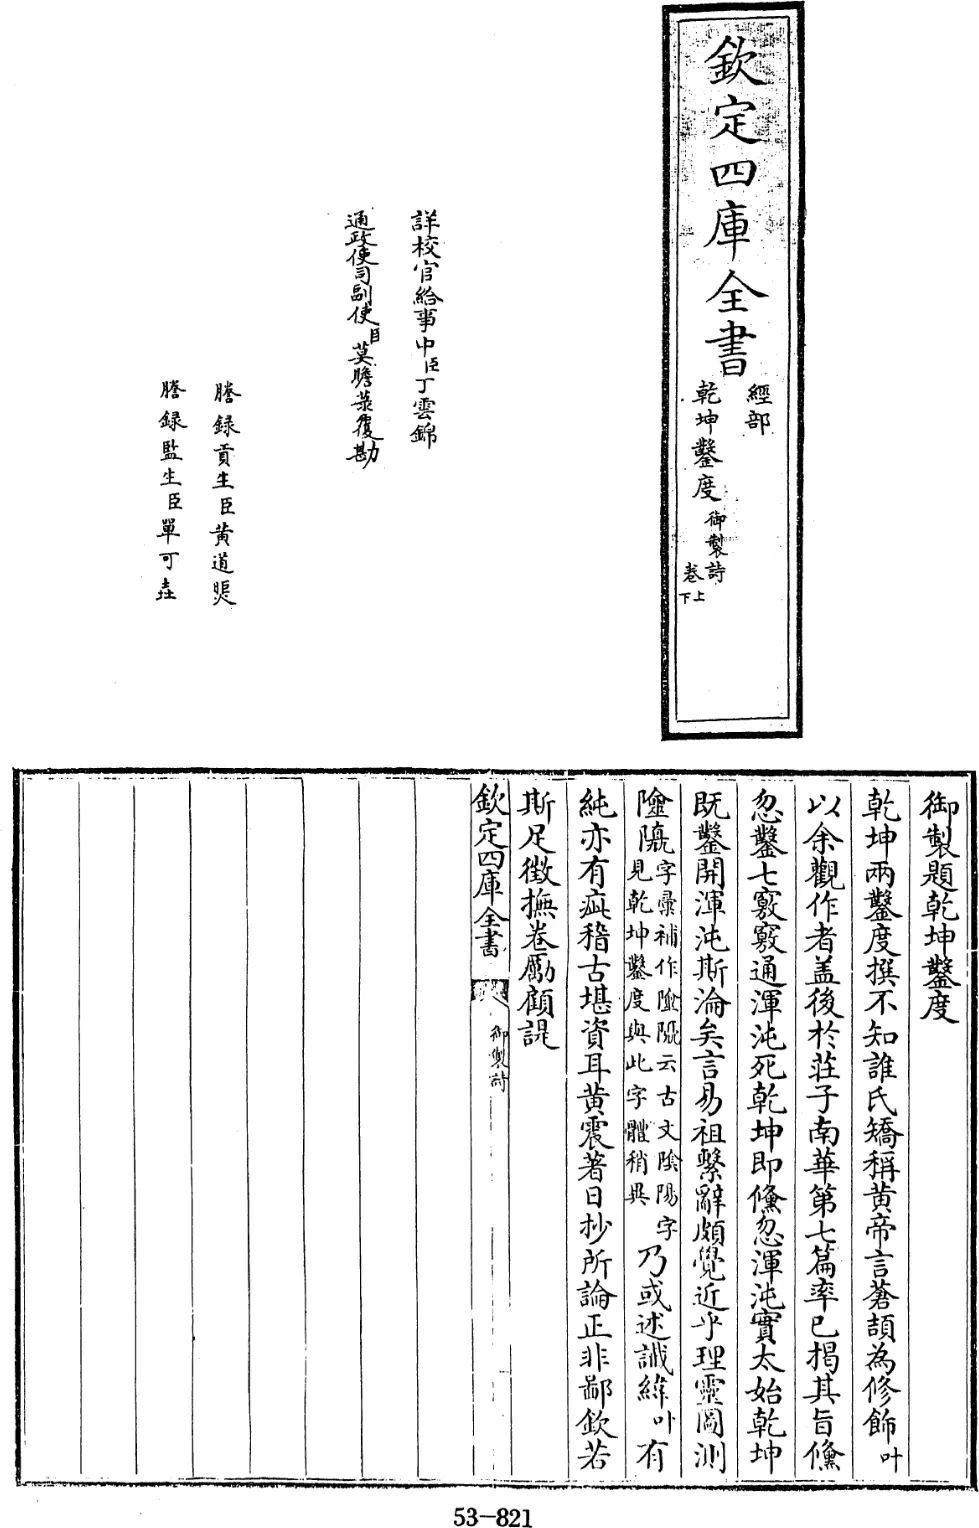 欽定四庫全書
經部
乾坤鑿度 御製詩
卷上
下
詳校官給事中臣丁雲錦
通政使司副使臣莫瞻菉覆勘
謄錄貢生臣黃道煚
謄錄監生臣單可垚
御製題乾坤鑿度
乾坤兩鑿度撰不知誰氏矯稱黃帝言蒼頡為修飾叶
以余觀作者盖後於莊子南華第七篇率已揭其旨儵
忽鑿七竅竅通渾沌死乾坤即儵忽渾沌實太始乾坤
既鑿開渾沌斯淪矣言易祖繫辭頗覺近乎理靈圖測
字彙補作云古文陰陽字
見乾坤鑿度與此字體稍異
乃或述讖緯叶有
純亦有疵稽古堪資耳黃震著日抄所論正非鄙欽若
斯足徵撫卷勵顧諟
欽定四庫全書
御製詩
53-821